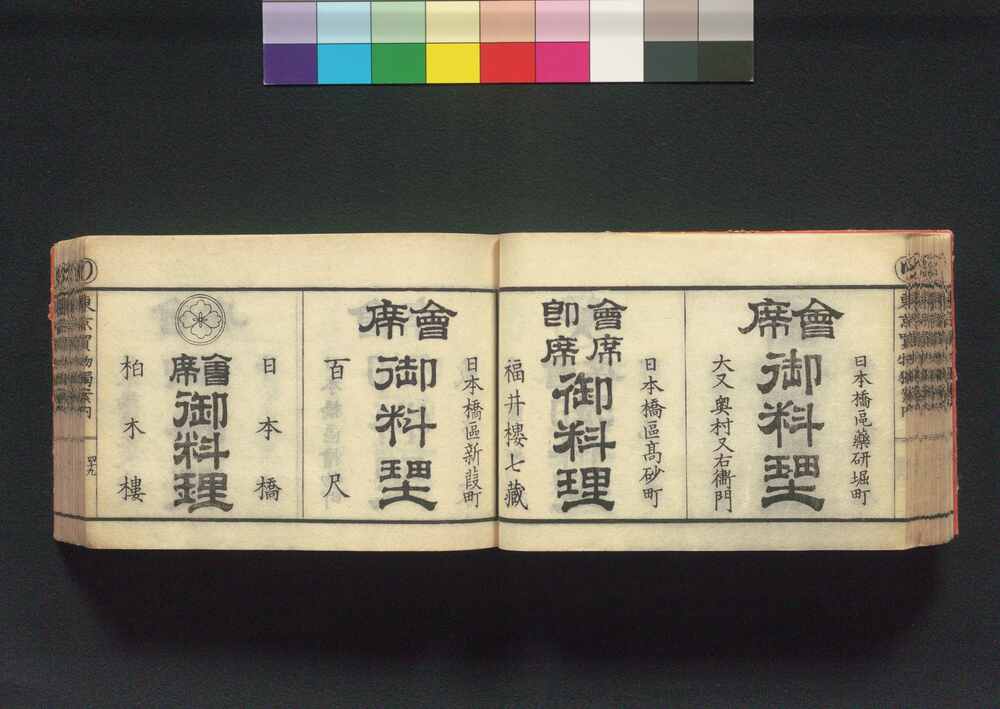 日本橋區藥研堀町
會席
御料理
大又 奥村又右衞門
日本橋區高砂町
會席
即席
御料理
福井樓七藏
日本橋區新葭町
會席
御料理
百尺
日本橋
會席
御料理
柏木樓
東京買物獨案内
四十九